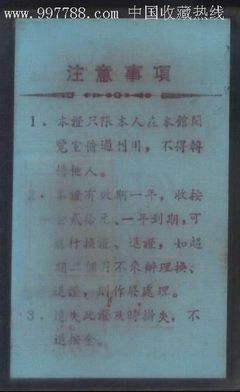 www.997788.com 中国收藏热线
注意事項
1．本證只限本人在本館閱
覽室借週刊用，不得轉
借他人。
2．本證有效期一年，收按
金貳拾元、一年到期，可
進行換證、退證，如超
期二個月不來辦理換、
退證，則作廢處理。
3．遗失此證及時掛失，不
退按金。